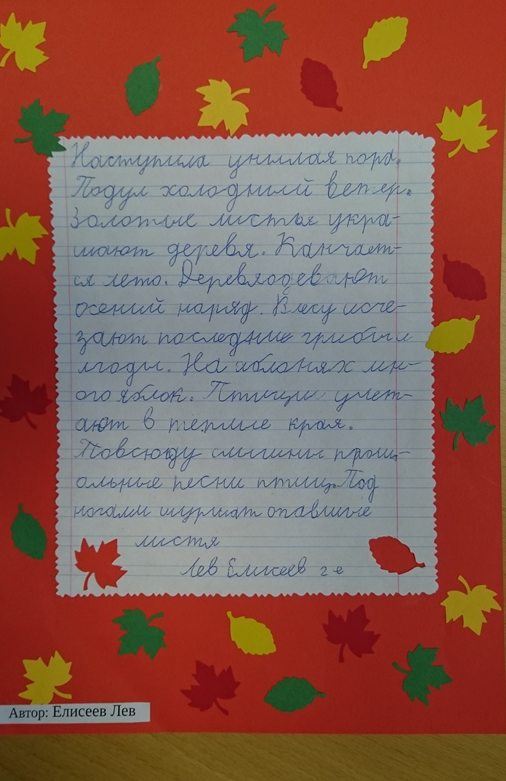 Наступила унылая пора.
Подул холодный ветер.
Золотые листье укра-
шают деревя. Канчает-
ся лето. Деревяодевают
осений наряд. Влесу исче-
зают последние грибы и
ягоды. На яблонях мн-
ого яблок. Птицы улет-
ают в теплые края.
Повсюду слышны прощ-
альные песни птиц. Под
ногами шуршат опавшие
листя
Лев Елисеев 2-е
Автор: Елисеев Лев